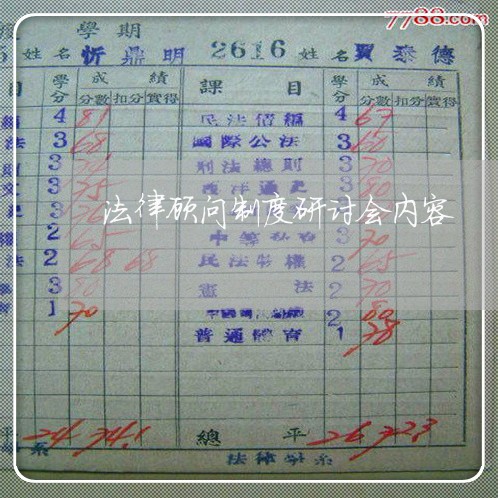 7788.com
學期
姓名 忻鼎明 2616 姓名 賈泰德
目 學分 成績 課目 學分 成績
分數 扣分 實得 分數 扣分 實得
4 81 民法債編 4 67
法 3 68 國際公法 3 60
3 刑法總則 3 70
3 75 西洋通史 3 80
法律顾问制度研讨会内容
2 65 3 70
法 2 68 68 民法物權 2 65
3 80 憲法 2 70
1 70 2 80
普通體育 1 78
平 24 74.1 總平 26 72.3
系 法律學系